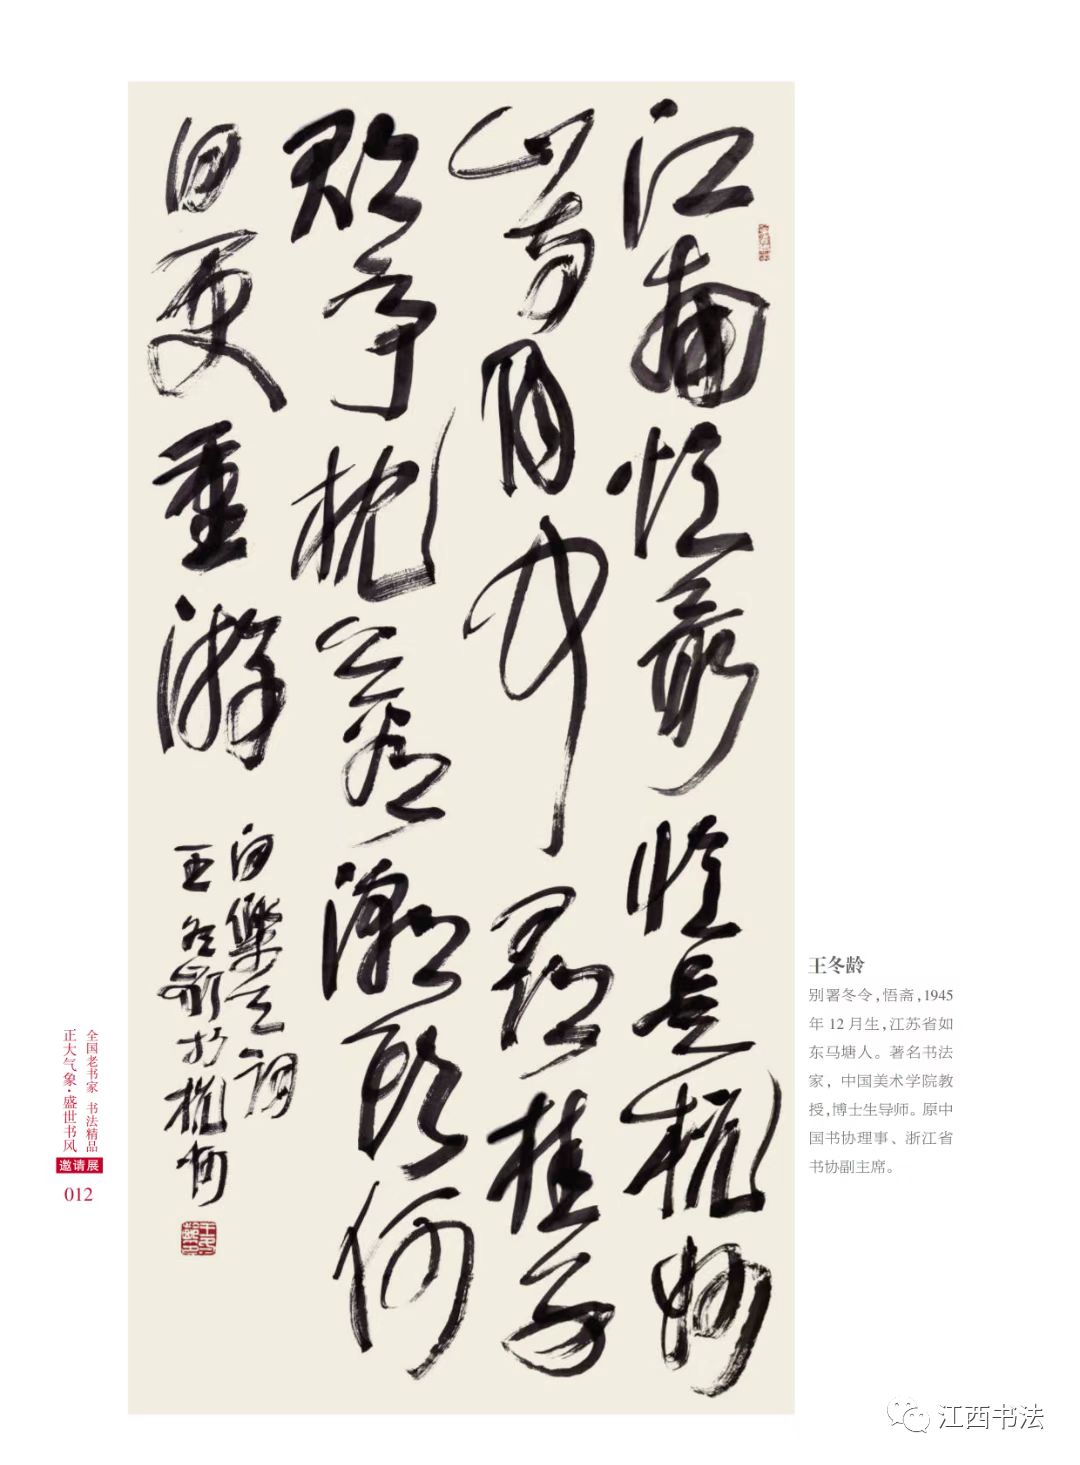 江南憶最憶是杭州
山寺月中尋桂子
郡亭枕上看潮頭何
日更重游
白樂天詞
王冬齡於杭州
王冬龄
别署冬令，悟斋，1945
年 12 月生，江苏省如
东马塘人。著名书法
家，中国美术学院教
授，博士生导师。原中
国书协理事、浙江省
书协副主席。
全国老书家 书法精品
正大气象·盛世书风
邀请展
012
江西书法